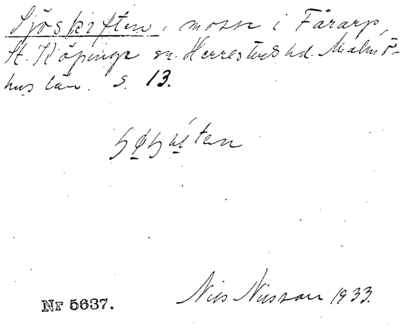 Sjöskiften, mosse i Fårarp,
St. Köpinge sn. Herrestads hd. Malmö-
hus län. S. 13.
Nils Nilsson 1933.
Nr 5637.